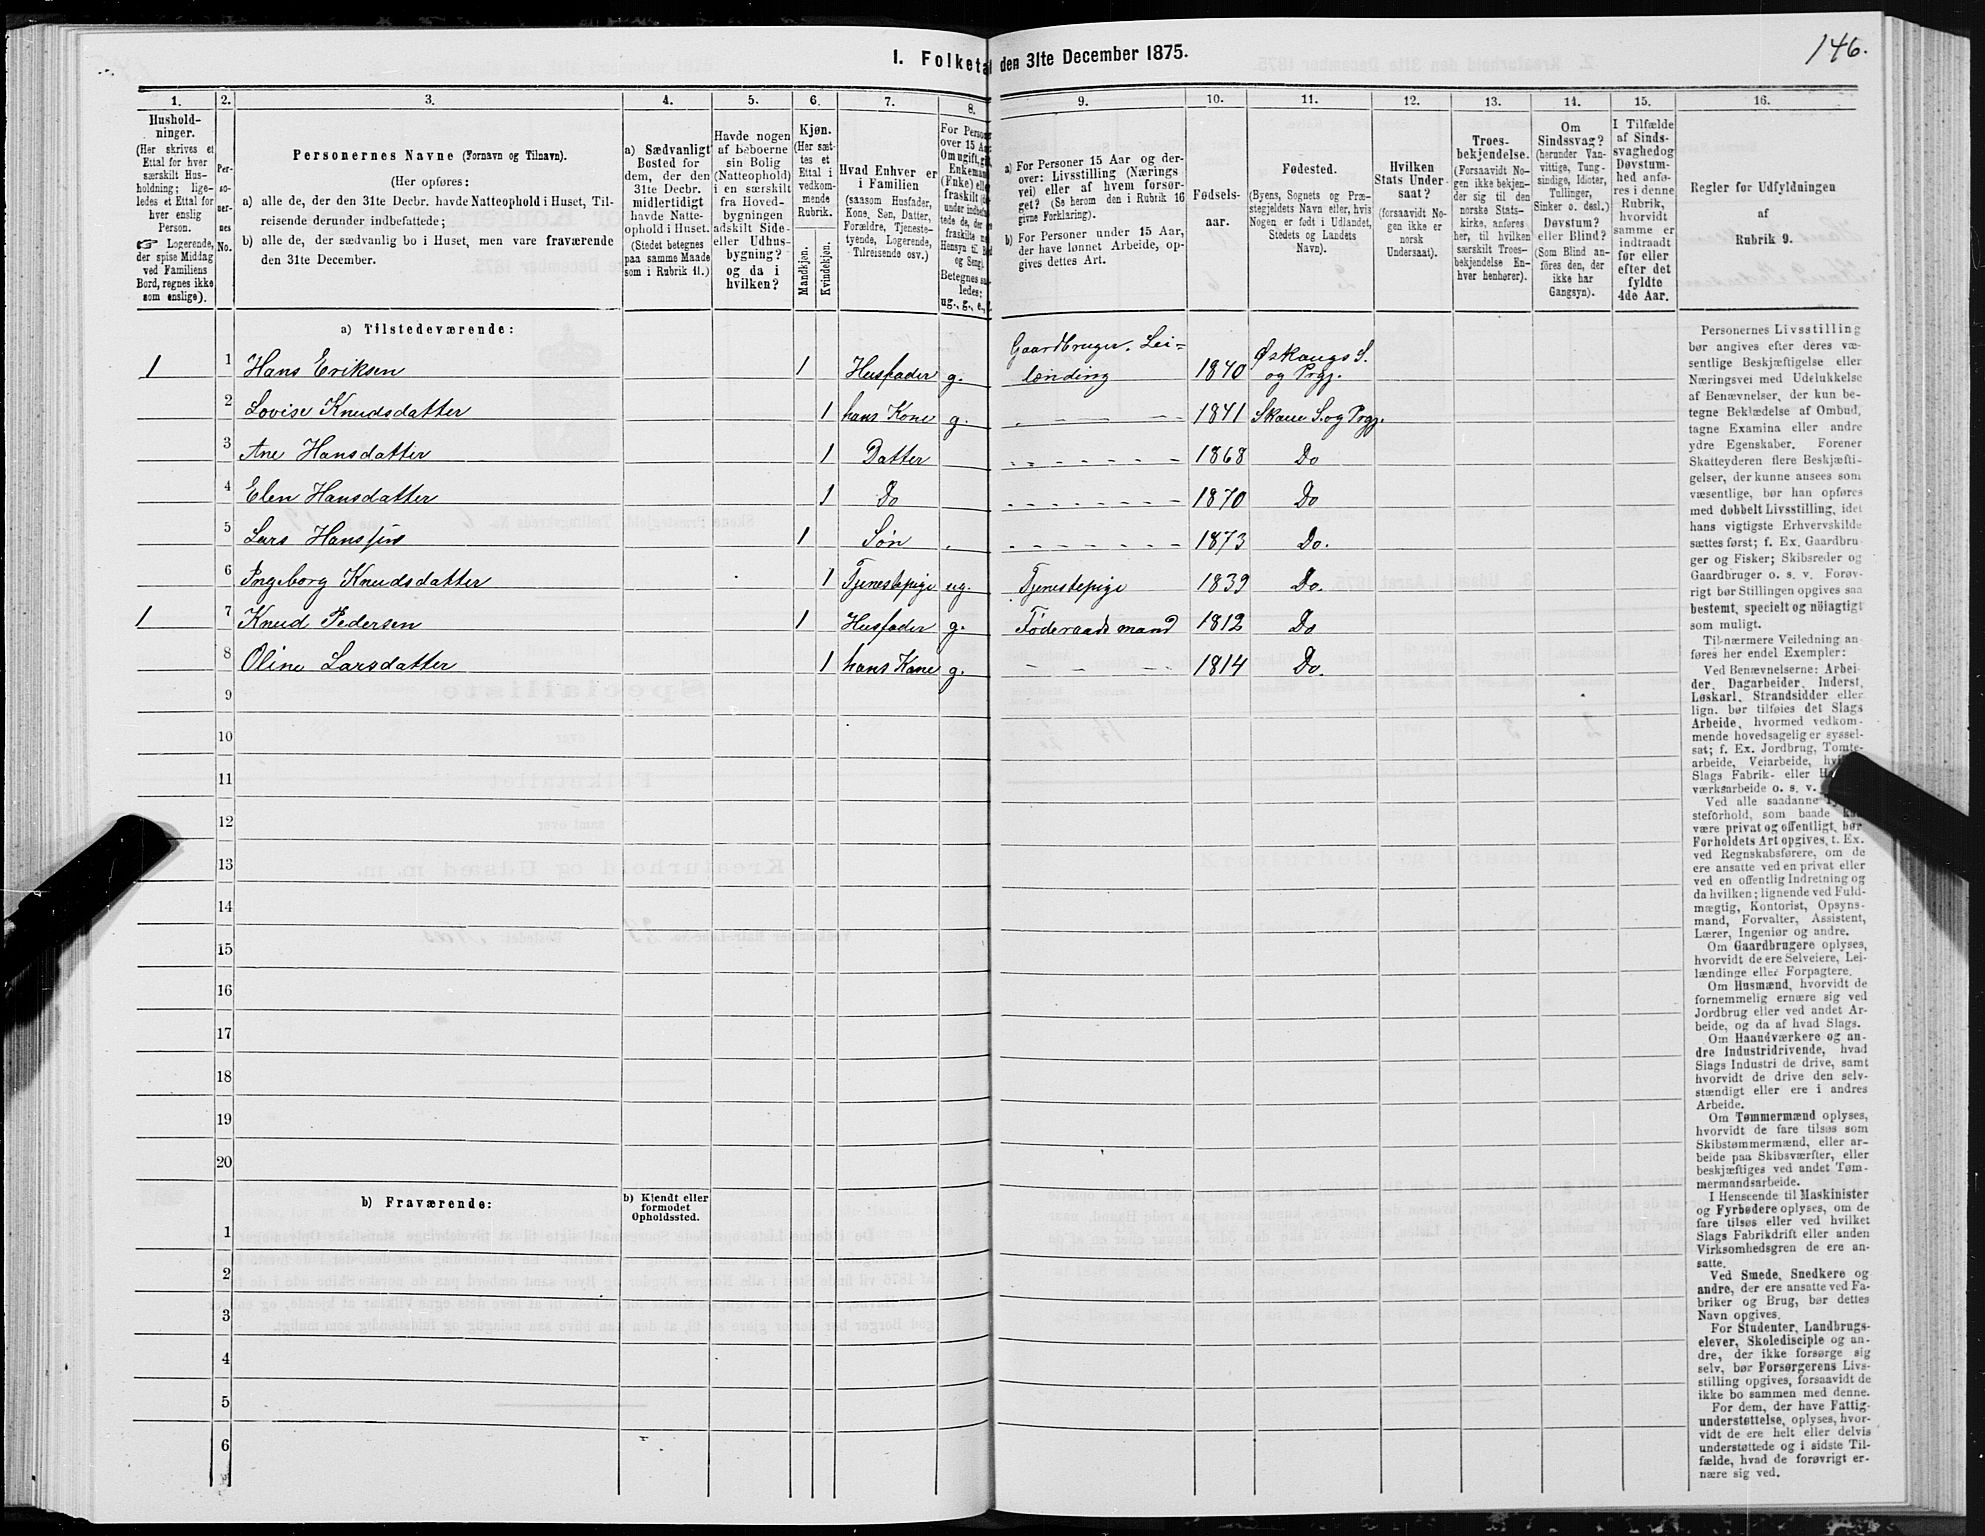 146.
I. Folketal den 31te December 1875.
1. 2. 3. 4. 5. 6. 7. 8. 9. 10. 11. 12. 13. 14. 15. 16.
Hushold-
ninger.
(Her skrives et
Ettal for hver
særskilt Hus-
holdning; lige-
ledes et Ettal for
hver enslig
Person.
☞ Logerende,
der spise Middag
ved Familiens
Bord, regnes ikke
som enslige).
Per-
so-
ner-
nes
No.
Personernes Navne (Fornavn og Tilnavn).
(Her opføres:
a) alle de, der den 31te Decbr. havde Natteophold i Huset, Til-
reisende derunder indbefattede;
b) alle de, der sædvanlig bo i Huset, men vare fraværende
den 31te December.
a) Sædvanligt
Bosted for
dem, der den
31te Decbr.
midlertidigt
havde Natte-
ophold i Huset.
(Stedet betegnes
paa samme Maade
som i Rubrik 11.)
Havde nogen
af beboerne
sin Bolig
(Natteophold)
i en særskilt
fra Hoved-
bygningen
adskilt Side-
eller Udhus-
bygning?
og da i
hvilken?
Kjøn.
(Her sæt-
tes et
Ettal i
vedkom-
mende
Rubrik.
Mandkjøn.
Kvindekjøn.
Hvad Enhver er
i Familien
(saasom Husfader,
Kone, Søn, Datter,
Forældre, Tjeneste-
tyende, Logerende,
Tilreisende osv.)
For Person
over 15 Aar
Om ugift, gift
Enkemand
(Enke) eller
fraskilt
Betegnes
ledes:
ug., g., e.,
a) For Personer 15 Aar og der-
over: Livsstilling (Nærings
vei) eller af hvem forsør-
get? (Se herom den i Rubrik 16
givne Forklaring).
b) For Personer under 15 Aar,
der have lønnet Arbeide, op-
gives dettes Art.
Fødsels-
aar.
Fødested.
(Byens, Sognets og Præ-
stegjeldets Navn eller, hvis
Nogen er født i Udlandet,
Stedets og Landets
Navn).
Hvilken
Stats Under-
saat?
(forsaavidt No-
gen ikke er
norsk
Undersaat).
Troes-
bekjendelse.
(Forsaavidt No-
gen ikke bekjen-
der sig til den
norske Stats-
kirke, anføres
her, til hvilken
særskilt Troes-
bekjendelse En-
hver henhører).
Om
Sindssvag?
(herunder Van-
vittige, Tung-
sindige, Idioter,
Tullinger,
Sinker o. desl.)
Døvstum?
eller Blind?
(Som Blind an-
føres den, der
ikke har
Gangsyn).
I Tilfælde
af Sinds-
svaghed og
Døvstum-
hed anfø-
res i denne
Rubrik,
hvorvidt
samme er
indtraadt
før eller
efter det
fyldte
4de Aar.
Regler for Udfyldningen
af
Rubrik 9.
a) Tilstedeværende:
1 1 Hans Eriksen 1 Husfader g. Gaardbruger. Lei-
lænding 1840 Øskaugs S.
og Prgj.
2 Lovise Knudsdatter 1 hans Kone g. - - - 1841 Skaue S. og Prgj.
3 Ane Hansdatter 1 Datter - - - - - - 1868 Do
4 Elen Hansdatter 1 Do - - - - - - 1870 Do
5 Lars Hanssen 1 Søn - - - - - - 1873 Do.
6 Ingeborg Knudsdatter 1 Tjenestepige ug. Tjenestepige 1839 Do.
1 7 Knud Pedersen 1 Husfader g. Føderaadsmand 1812 Do
8 Oline Larsdatter 1 hans Kone g. - - - - 1814 Do.
9
10
11
12
13
14
15
16
17
18
19
20
b) Fraværende:
b) Kjendt eller
formodet
Opholdssted.
1
2
3
4
5
6
Personernes Livsstilling
bør angives efter deres væ-
sentlige Beskjæftigelse eller
Næringsvei med Udelukkelse
af Benævnelser, der kun be-
tegne Beklædelse af Ombud,
tagne Examina eller andre
ydre Egenskaber. Forener
Skatteyderen flere Beskjæfti-
gelser, der kunne ansees som
væsentlige, bør han opføres
med dobbelt Livsstilling, idet
hans vigtigste Erhvervskilde
sættes først; f. Ex. Gaardbru-
ger og Fisker; Skibsreder og
Gaardbruger o. s. v. Forøv-
rigt bør Stillingen opgives saa
bestemt, specielt og nöiagtigt
som muligt.
Til nærmere Veiledning an-
føres her endel Exempler:
Ved Benævnelserne: Arbei-
der, Dagarbeider, Inderst,
Løskarl, Strandsidder eller
lign. bør tilføies det Slags
Arbeide, hvormed vedkom-
mende hovedsagelig er syssel-
sat; f. Ex. Jordbrug, Tomte-
arbeide, Veiarbeide,
Slags Fabrik- eller
værksarbeide o. s. v.
Ved alle saadanne
steforhold, som baade
være privat og offentligt, bør
Forholdets Art opgives, f. Ex.
ved Regnskabsførere, om de
ere ansatte ved en privat eller
ved en offentlig Indretning og
da hvilken; lignende ved Fuld-
mægtig, Kontorist, Opsyns-
mand, Forvalter, Assistent,
Lærer, Ingeniør og andre.
Om Gaardbrugere oplyses,
hvorvidt de ere Selveiere, Lei-
lændinge eller Forpagtere.
Om Husmænd, hvorvidt de
fornemmelig ernære sig ved
Jordbrug eller ved andet Ar-
beide, og da af hvad Slags.
Om Haandværkere og an-
dre Industridrivende, hvad
Slags Industri de drive, samt
hvorvidt de drive den selv-
stændigt eller ere i andres
Arbeide.
Om Tømmermænd oplyses,
hvorvidt de fare tilsøs som
Skibstømmermænd, eller ar-
beide paa Skibsværfter, eller
beskjæftiges ved andet Tøm-
mermandsarbeide.
I Henseende til Maskinister
og Fyrbødere oplyses, om de
fare tilsøs eller ved hvilket
Slags Fabrikdrift eller anden
Virksomhedsgren de ere an-
satte.
Ved Smede, Snedkere og
andre, der ere ansatte ved Fa-
briker og Brug, bør dettes
Navn opgives.
For Studenter, Landbrugs-
elever, Skoledisciple og an-
dre, der ikke forsørge sig
selv, bør Forsørgerens Livs-
stilling opgives, forsaavidt de
ikke bo sammen med denne.
For dem, der have Fattig-
understøttelse, oplyses, hvor-
vidt de ere helt eller delvis
understøttede og i sidste Til-
fælde, hvad de forøvrigt er-
nære sig ved.